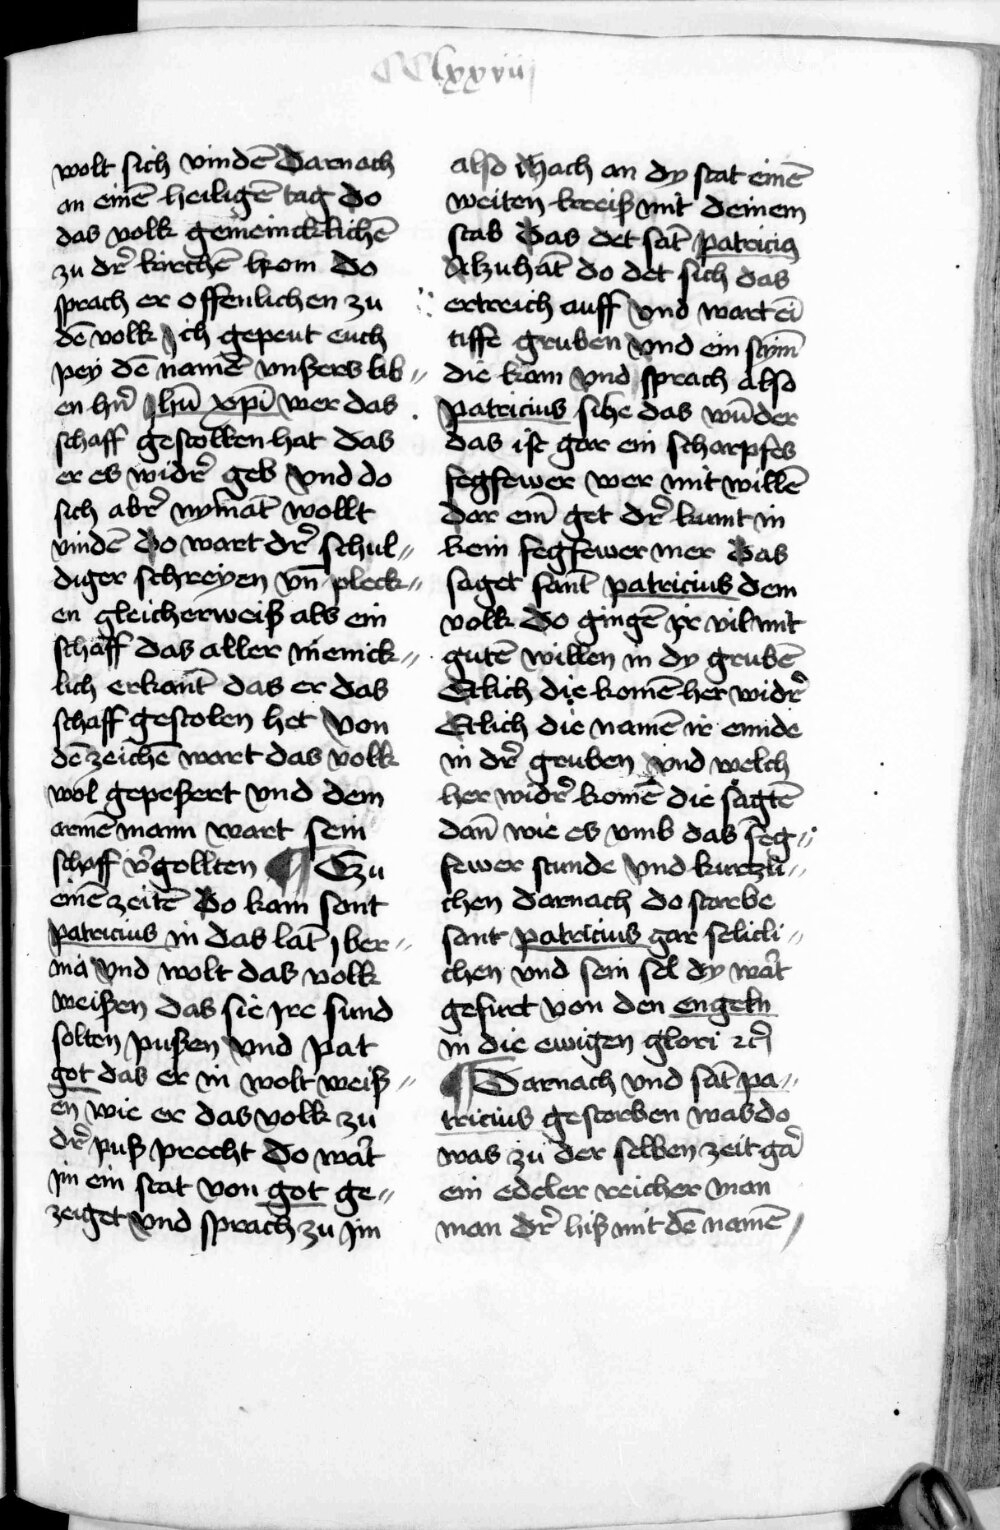 CClxxviii
wolt sich vindē Darnach
an einē heiligē tag do
das volk gemeincklichē
zu dr̄ kirchē kom Do
sprach er offenlichen zu
dē volk Ich gepeut euch
pey dē namē vnßers lib//
en hr̄n jhū xp̄i wer das
schaff gestollen hat das
er es widr̄ geb Vnd do
sich abr̄ nymāt wollt
vindē Do wart dr̄ schul//
diger schreyen vn̄ pleck//
en gleicherweiß als ein
schaff das aller menick//
lich erkant̄ das er das
schaff gestolen het Von
dē zeichē wart das volk
wol gepeßert vnd dem
armē mann wart sein
schoff v̄gollten ¶ Czu
einē zeitē Do kam sant
patricius in das lāt jber//
nia vnd wolt das volk
weißen das sie jre sund
solten pußen Vnd pat
got das er in wolt weiß//
en wie er das volk zu
dr̄ puß precht Do wār̄t
im ein stat von got ge//
zeiget Vnd sprach zu jm
also Mach an dy stat einē
weiten kreiß mit deinem
stab Das det sāt patricius
Alzuhāt do det sich das
ertreich auff Vnd wart eī
tiffe gruben Vnd ein stym̄
die kam Vnd sprach also
patricius sihe das wūder
das ist gar ein scharpfes
fegfewer wer mit willē
dar eī get dr̄ kumt in
kein fegfewer mer Das
saget sant̄ patricius dem
volk Do gingē jr vil mit
gutē willen in dy grubē
Etlich die komē her widr̄
Etlich die namē ir ennde
in dr̄ gruben Vnd welch
her widr̄ komē die sagtē
dan̄ wie es vmb das feg//
fewer stunde Vnd kurczli//
chen darnach do starbe
sant patricius gar selicli//
chen vnd sein sel dy wār̄t
gefurt von den engeln
in die ewigen glori ꝛc̄
¶ Darnach vnd sāt pa//
tricius gestorben was do
was zu der selben zeit gā
ein edeler reicher man
man dr̄ hiß mit dē namē /